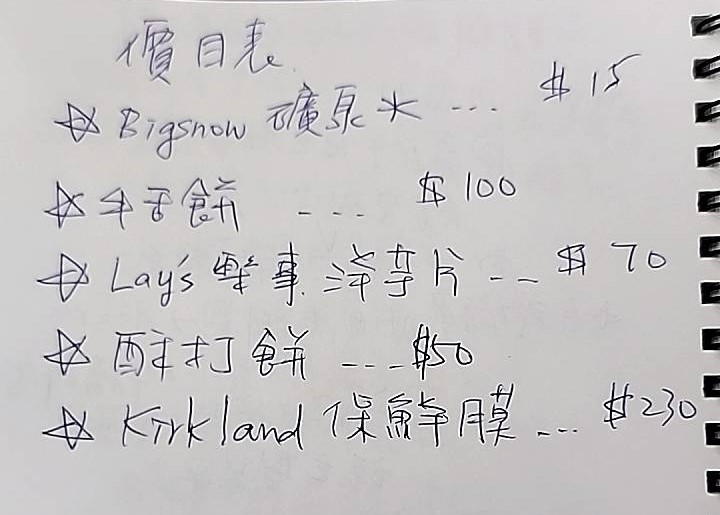 價目表
☆ Bigsnow 礦泉水 ... $15
☆ 牛舌餅 ... $100
☆ Lay's 樂事 洋芋片 ... $70
☆ 酥打餅 ... $50
☆ Kirkland 保鮮膜 ... $230